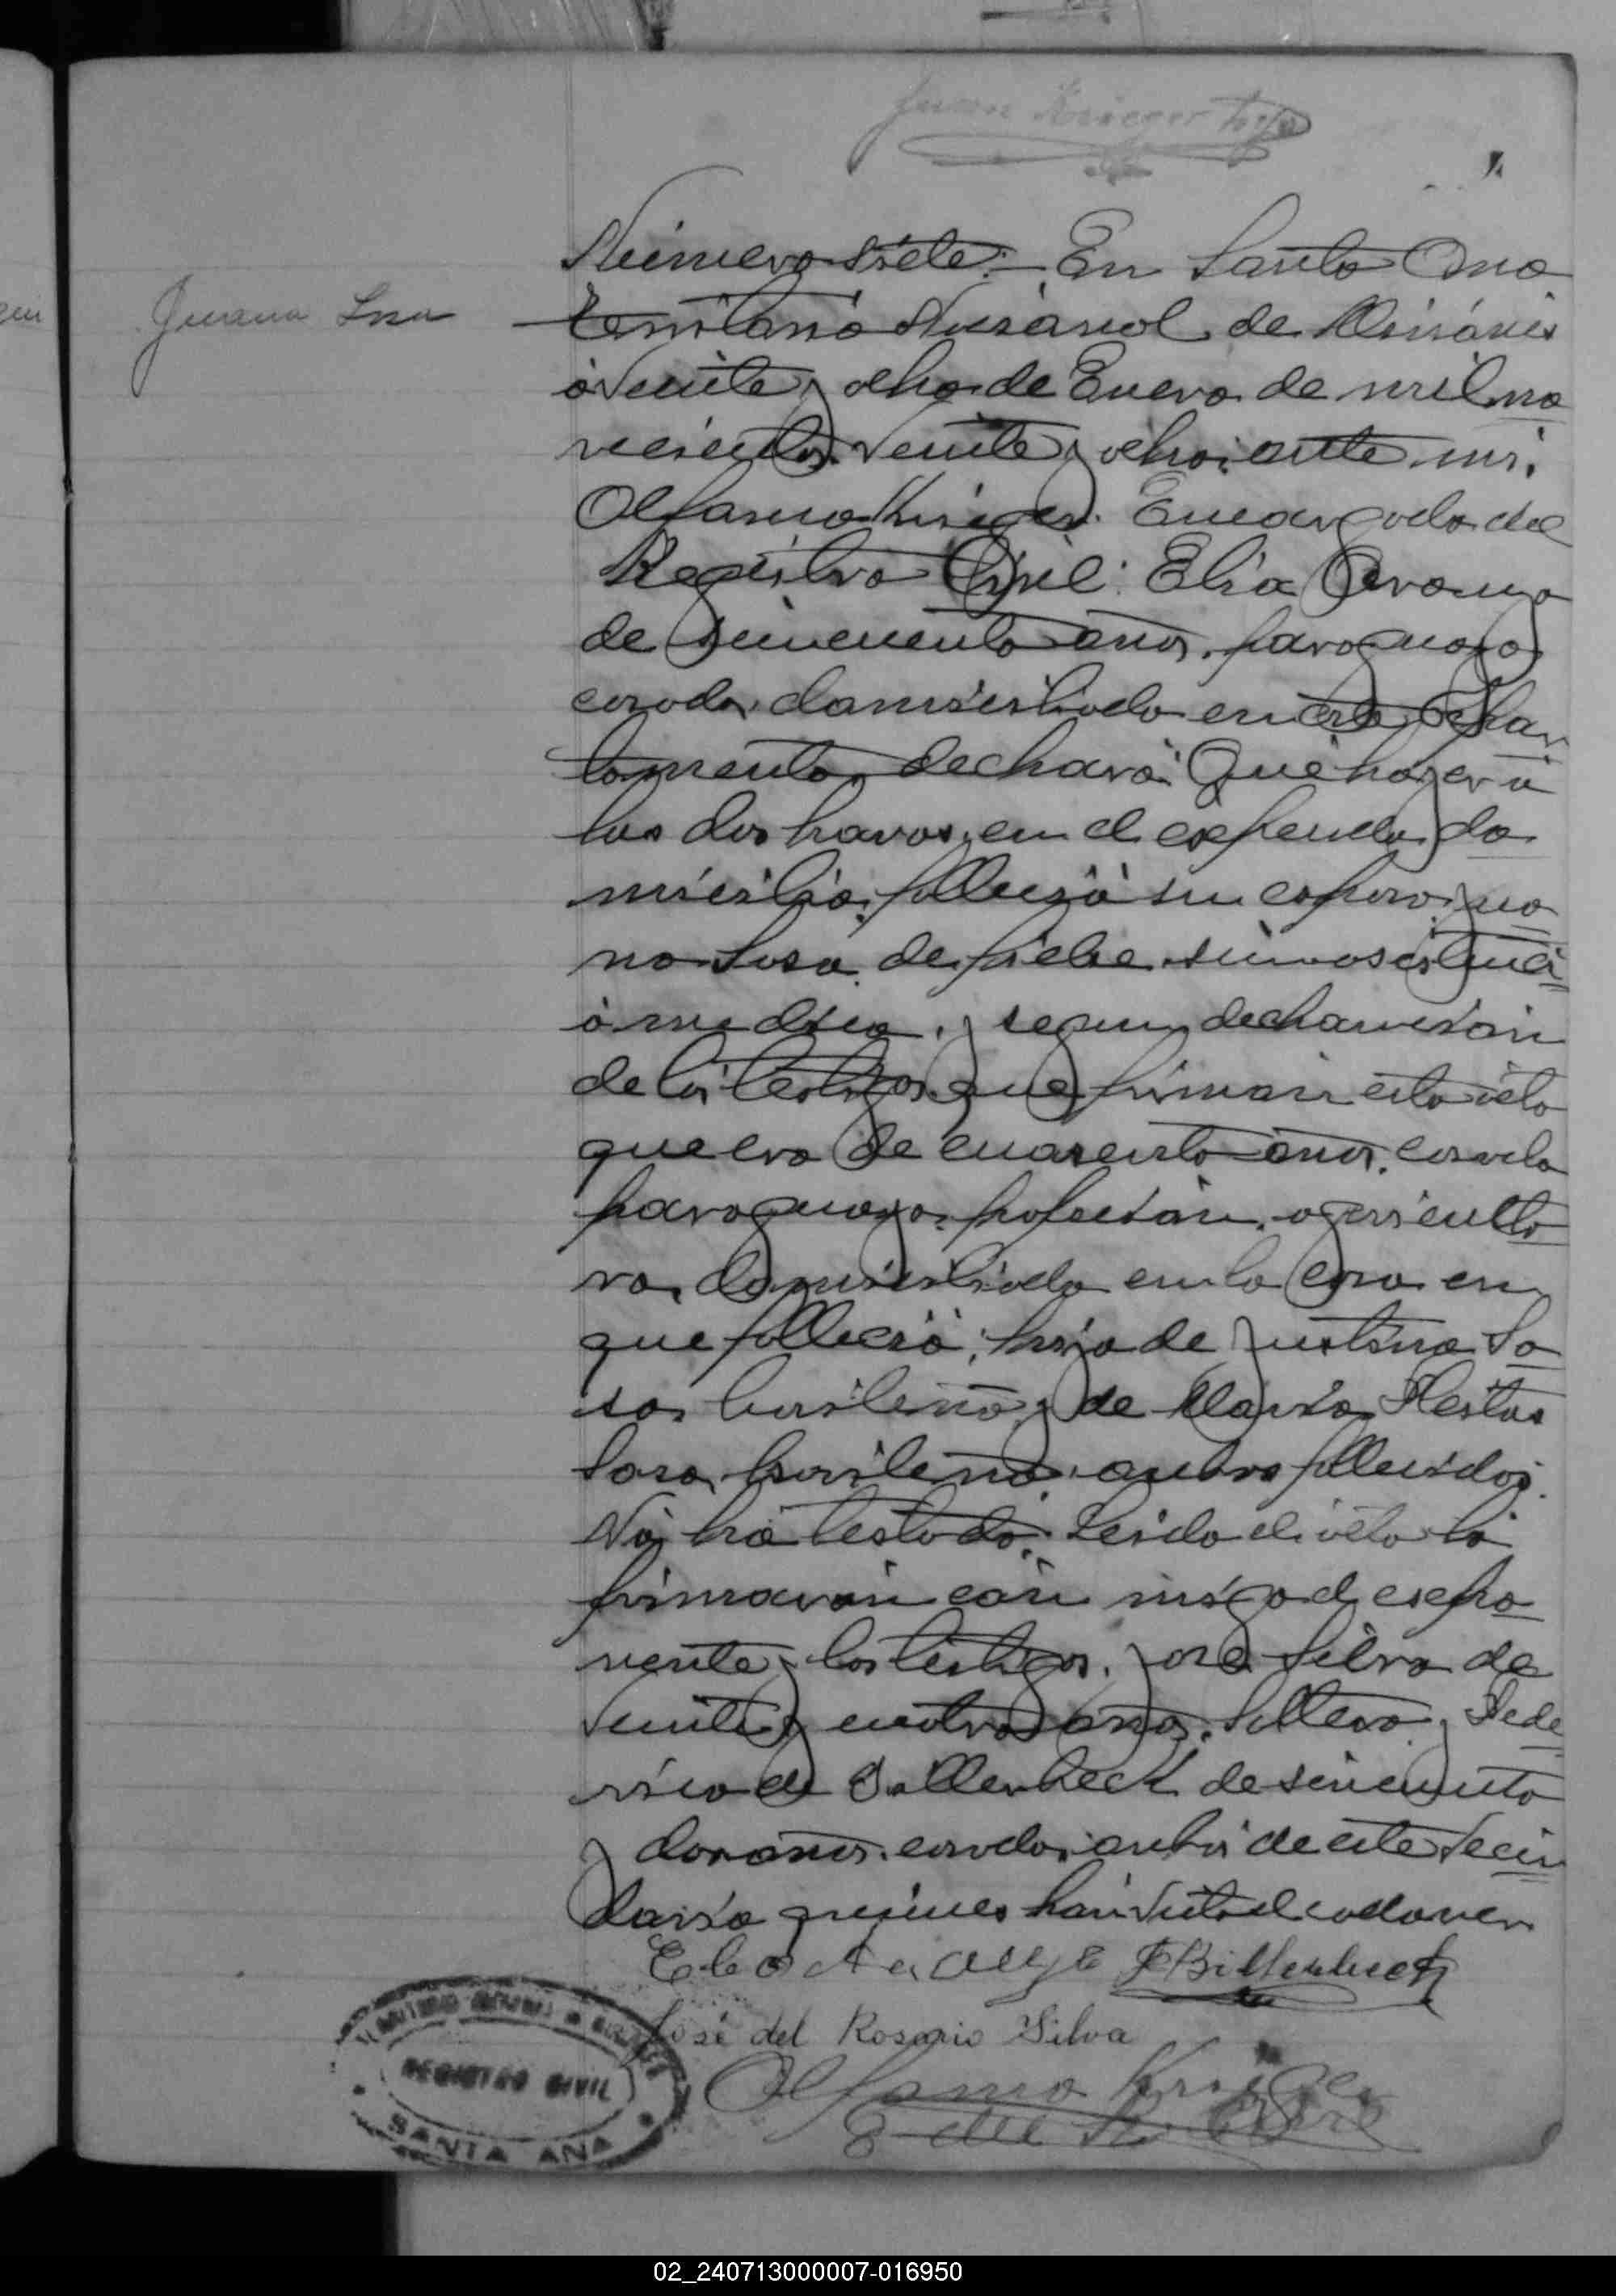 Juan Krieger hijo
Número siete: En Santa Ana
Juana Sosa
Territorio Nacional de Misiones
á veinte y ocho de Enero de mil no
vecientos veinte y ocho, ante mi,
Krieger. Encargado del
Registro Civil: Elia
de sincuenta años, paraguayo,
casado, domisiliado en este Depar
tamento, declaró: Que hoy, er á
las dos horas, en el espresado do
misilio, fallesió su esposa Jua
na Sosa, de fiebre, sin asistenci
a medica, y segun declarasion
de los testigos que firman esta acta
que era de cuarenta años, casada
paraguaya, profesion, agriculto
ra, domisiliada en la casa en
que fallesió; hija de Justino So
sa, brasileño y de Maria
Sosa, brasileña, ambos fallesidos.
No há testado. Leida el acta la
firmaron con migo el espo
nente y los testigos, José Silva de
veinte y cuatro años, soltero y Fede
rico de Billerbeck de sincuenta
y dos años, casado, ambos de este vecin
dario quienes han visto el cadaver
Billerbeck
José del Rosario Silva
Krieger
E del R. Civil
REGISTRO CIVIL
SANTA ANA
02_240713000007-016950